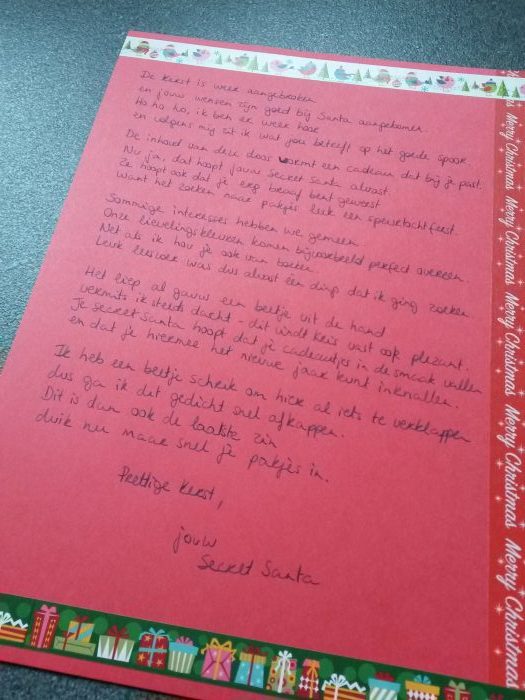 De kerst is weer aangebroken
en jouw wensen zijn goed bij Santa aangekomen.
Ho ho ho, ik ben er weer hoor
en volgens mij zit ik wat jou betreft op het goede spoor.
De inhoud van deze doos vormt een cadeau dat bij je past.
Nu ja, dat hoopt jouw Secret Santa alvast.
Ze hoopt ook dat je erg braaf bent geweest
Want het zoeken naar pakjes leek een speurtochtfeest.
Sommige interesses hebben we gemeen.
Onze lievelingskleuren komen bijvoorbeeld perfect overeen.
Net als ik hou je ook van boeken.
Leuk leesvoer was dus alvast een ding dat ik ging zoeken.
Het liep al gauw een beetje uit de hand
vermits ik steeds dacht - dit vindt Kris vast ook plezant.
Je secret Santa hoopt dat je cadeautjes in de smaak vallen
en dat je hiermee het nieuwe jaar kunt inknallen.
Ik heb een beetje schrik om hier al iets te verklappen
dus ga ik dit gedicht snel afkappen.
Dit is dan ook de laatste zin
duik nu maar snel je pakjes in.
Prettige kerst,
jouw
Secret Santa
Merry Christmas Merry Christmas Merry Christmas Merry Christmas Merry Christmas Merry Christmas